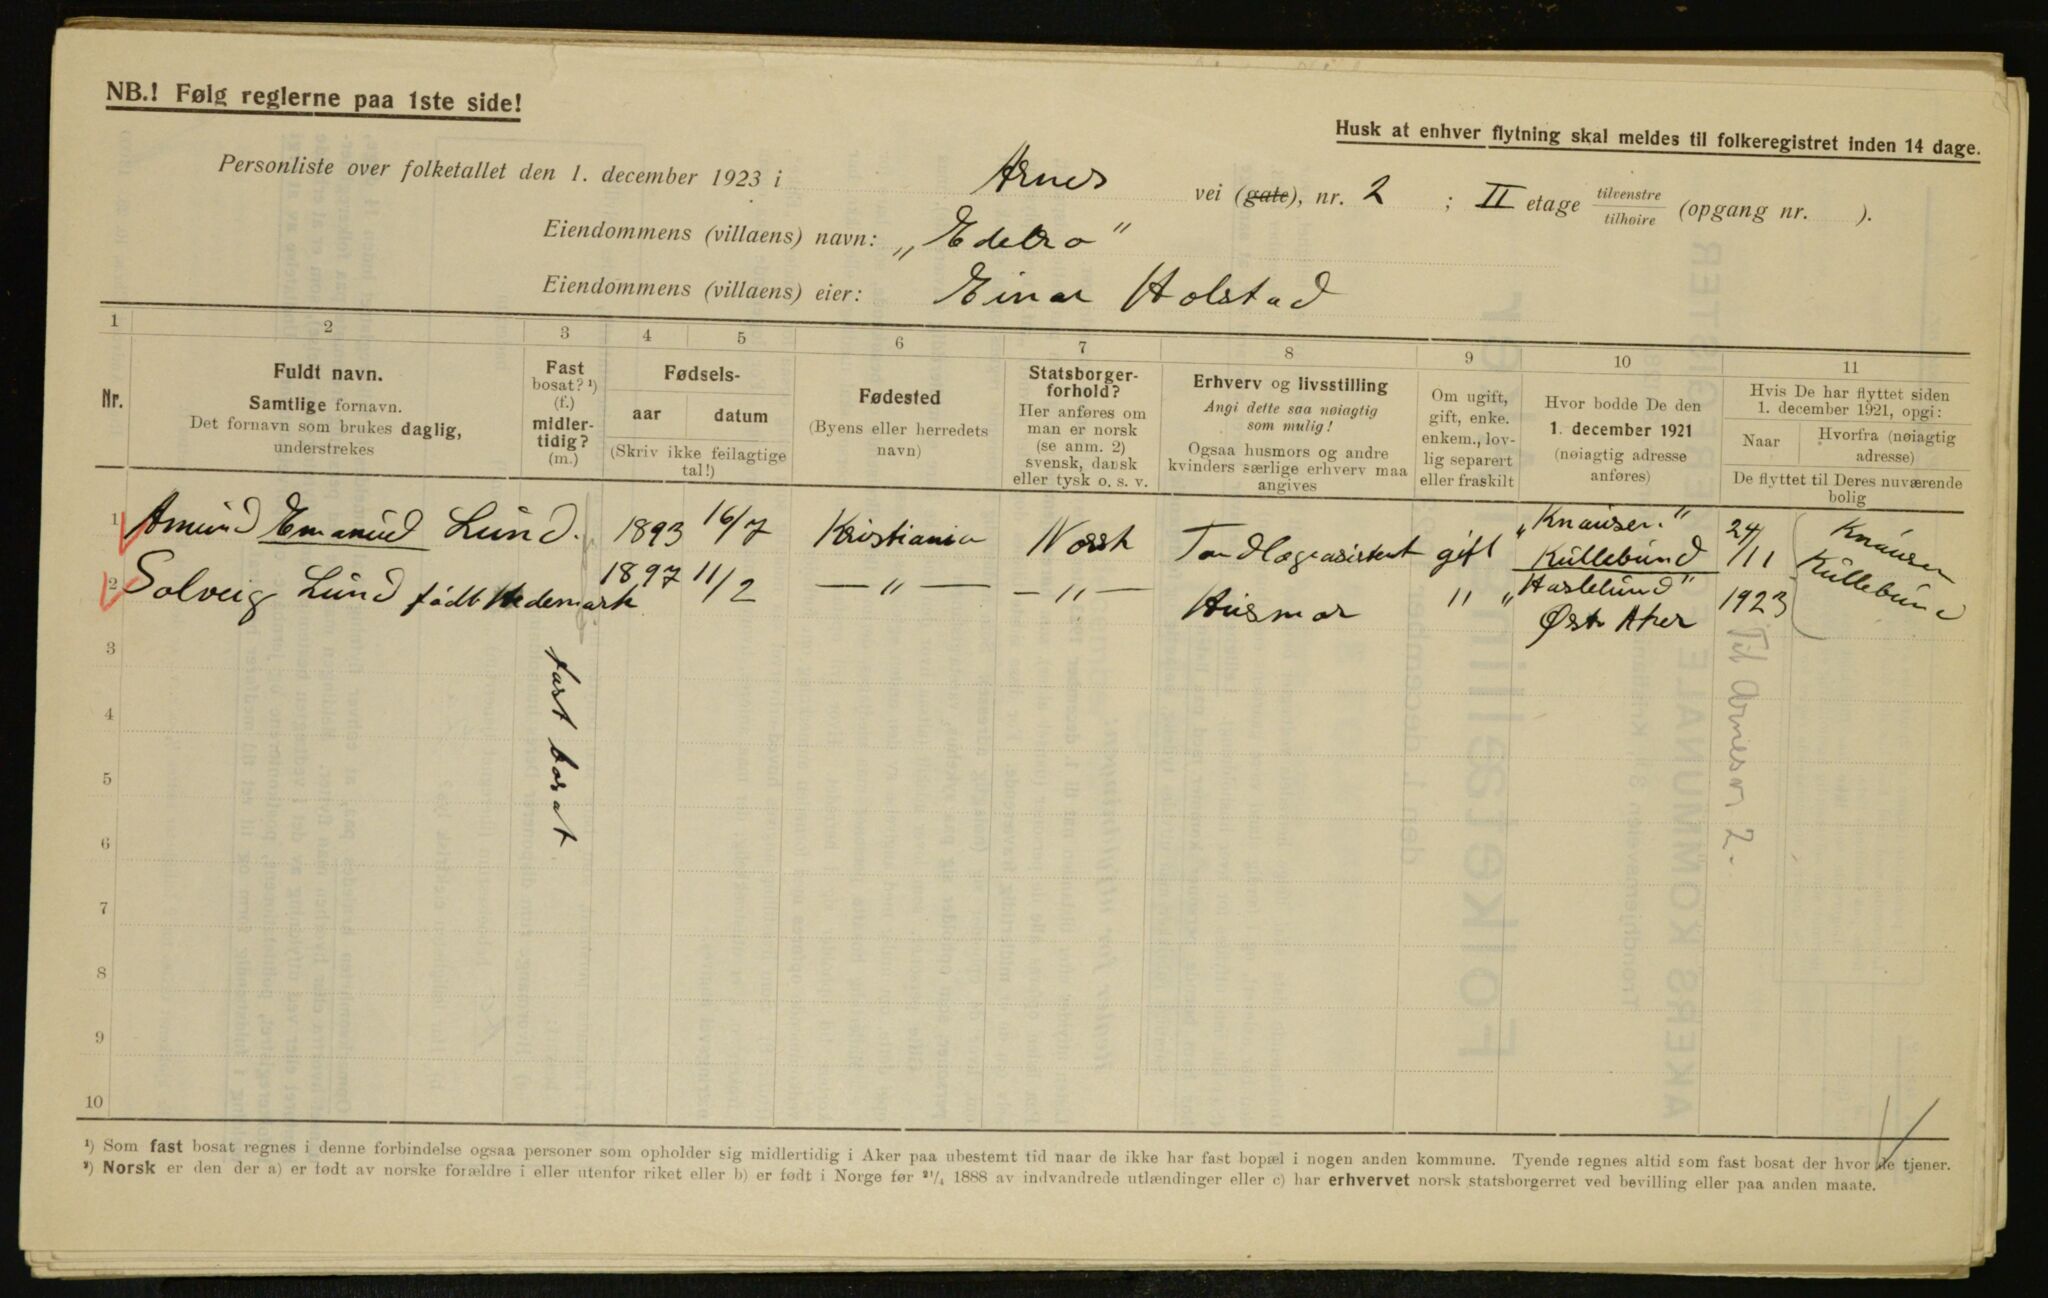 NB.! Følg reglerne paa 1ste side!
Husk at enhver flytning skal meldes til folkeregistret inden 14 dage.
Personliste over folketallet den 1. december 1923 i Arnes vei (gate), nr. 2 ; II etage tilvenstre / tilhøire (opgang nr. ).
Eiendommens (villaens) navn: „Edelro"
Eiendommens (villaens) eier: Einar Holstad
1 2 3 4 5 6 7 8 9 10 11
Nr.
Fuldt navn.
Samtlige fornavn.
Det fornavn som brukes daglig,
understrekes
Fast
bosat? ¹)
(f.)
midler-
tidig?
(m.)
Fødsels-
aar datum
(Skriv ikke feilagtige
tal!)
Fødested
(Byens eller herredets
navn)
Statsborger-
forhold?
Her anføres om
man er norsk
(se anm. 2)
svensk, dansk
eller tysk o. s. v.
Erhverv og livsstilling
Angi dette saa nøiagtig
som mulig!
Ogsaa husmors og andre
kvinders særlige erhverv maa
angives
Om ugift,
gift, enke.
enkem., lov-
lig separert
eller fraskilt
Hvor bodde De den
1. december 1921
(nøiagtig adresse
anføres)
Hvis De har flyttet siden
1. december 1921, opgi:
Naar
Hvorfra (nøiagtig
adresse)
De flyttet til Deres nuværende
bolig
1 Amund Emanuel Lund. 1893 16/7 Kristiania Norsk Tandlægeassistent gift „Knausen." Kullebund 24/11 1923 Knausen Kullebund
2 Solveig Lund født Hedemark 1897 11/2 — " — — " — Husmor " „Haslelund" Østr Aker
fast bosat
Til Arnesv 2.
3
4
5
6
7
8
9
10
¹) Som fast bosat regnes i denne forbindelse ogsaa personer som opholder sig midlertidig i Aker paa ubestemt tid naar de ikke har fast bopæl i nogen anden kommune. Tyende regnes altid som fast bosat der hvor de tjener.
²) Norsk er den der a) er født av norske forældre i eller utenfor riket eller b) er født i Norge før ²¹/₄ 1888 av indvandrede utlændinger eller c) har erhvervet norsk statsborgerret ved bevilling eller paa anden maate.